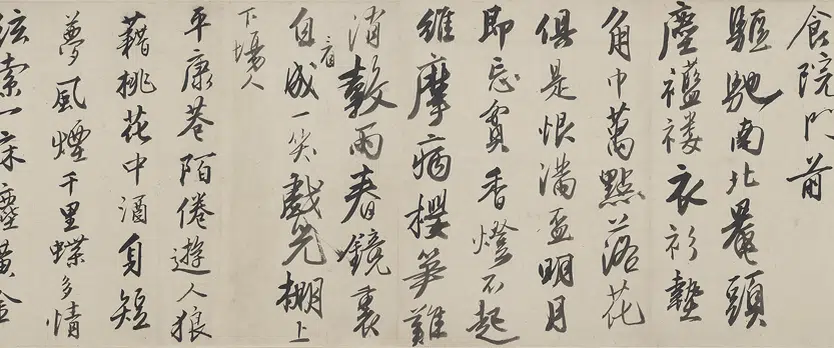 食院門前
驅馳南北罨頭
塵襤褸衣衫墊
角巾萬點落花
俱是恨滿盃明月
即忘貧香燈不起
維摩病櫻笋難
消穀雨春鏡裏
自看成一笑戲兒棚上
下場人
平康巷陌倦遊人狼
藉桃花中酒身短
夢風煙千里蝶多情
絃索一床塵黃金